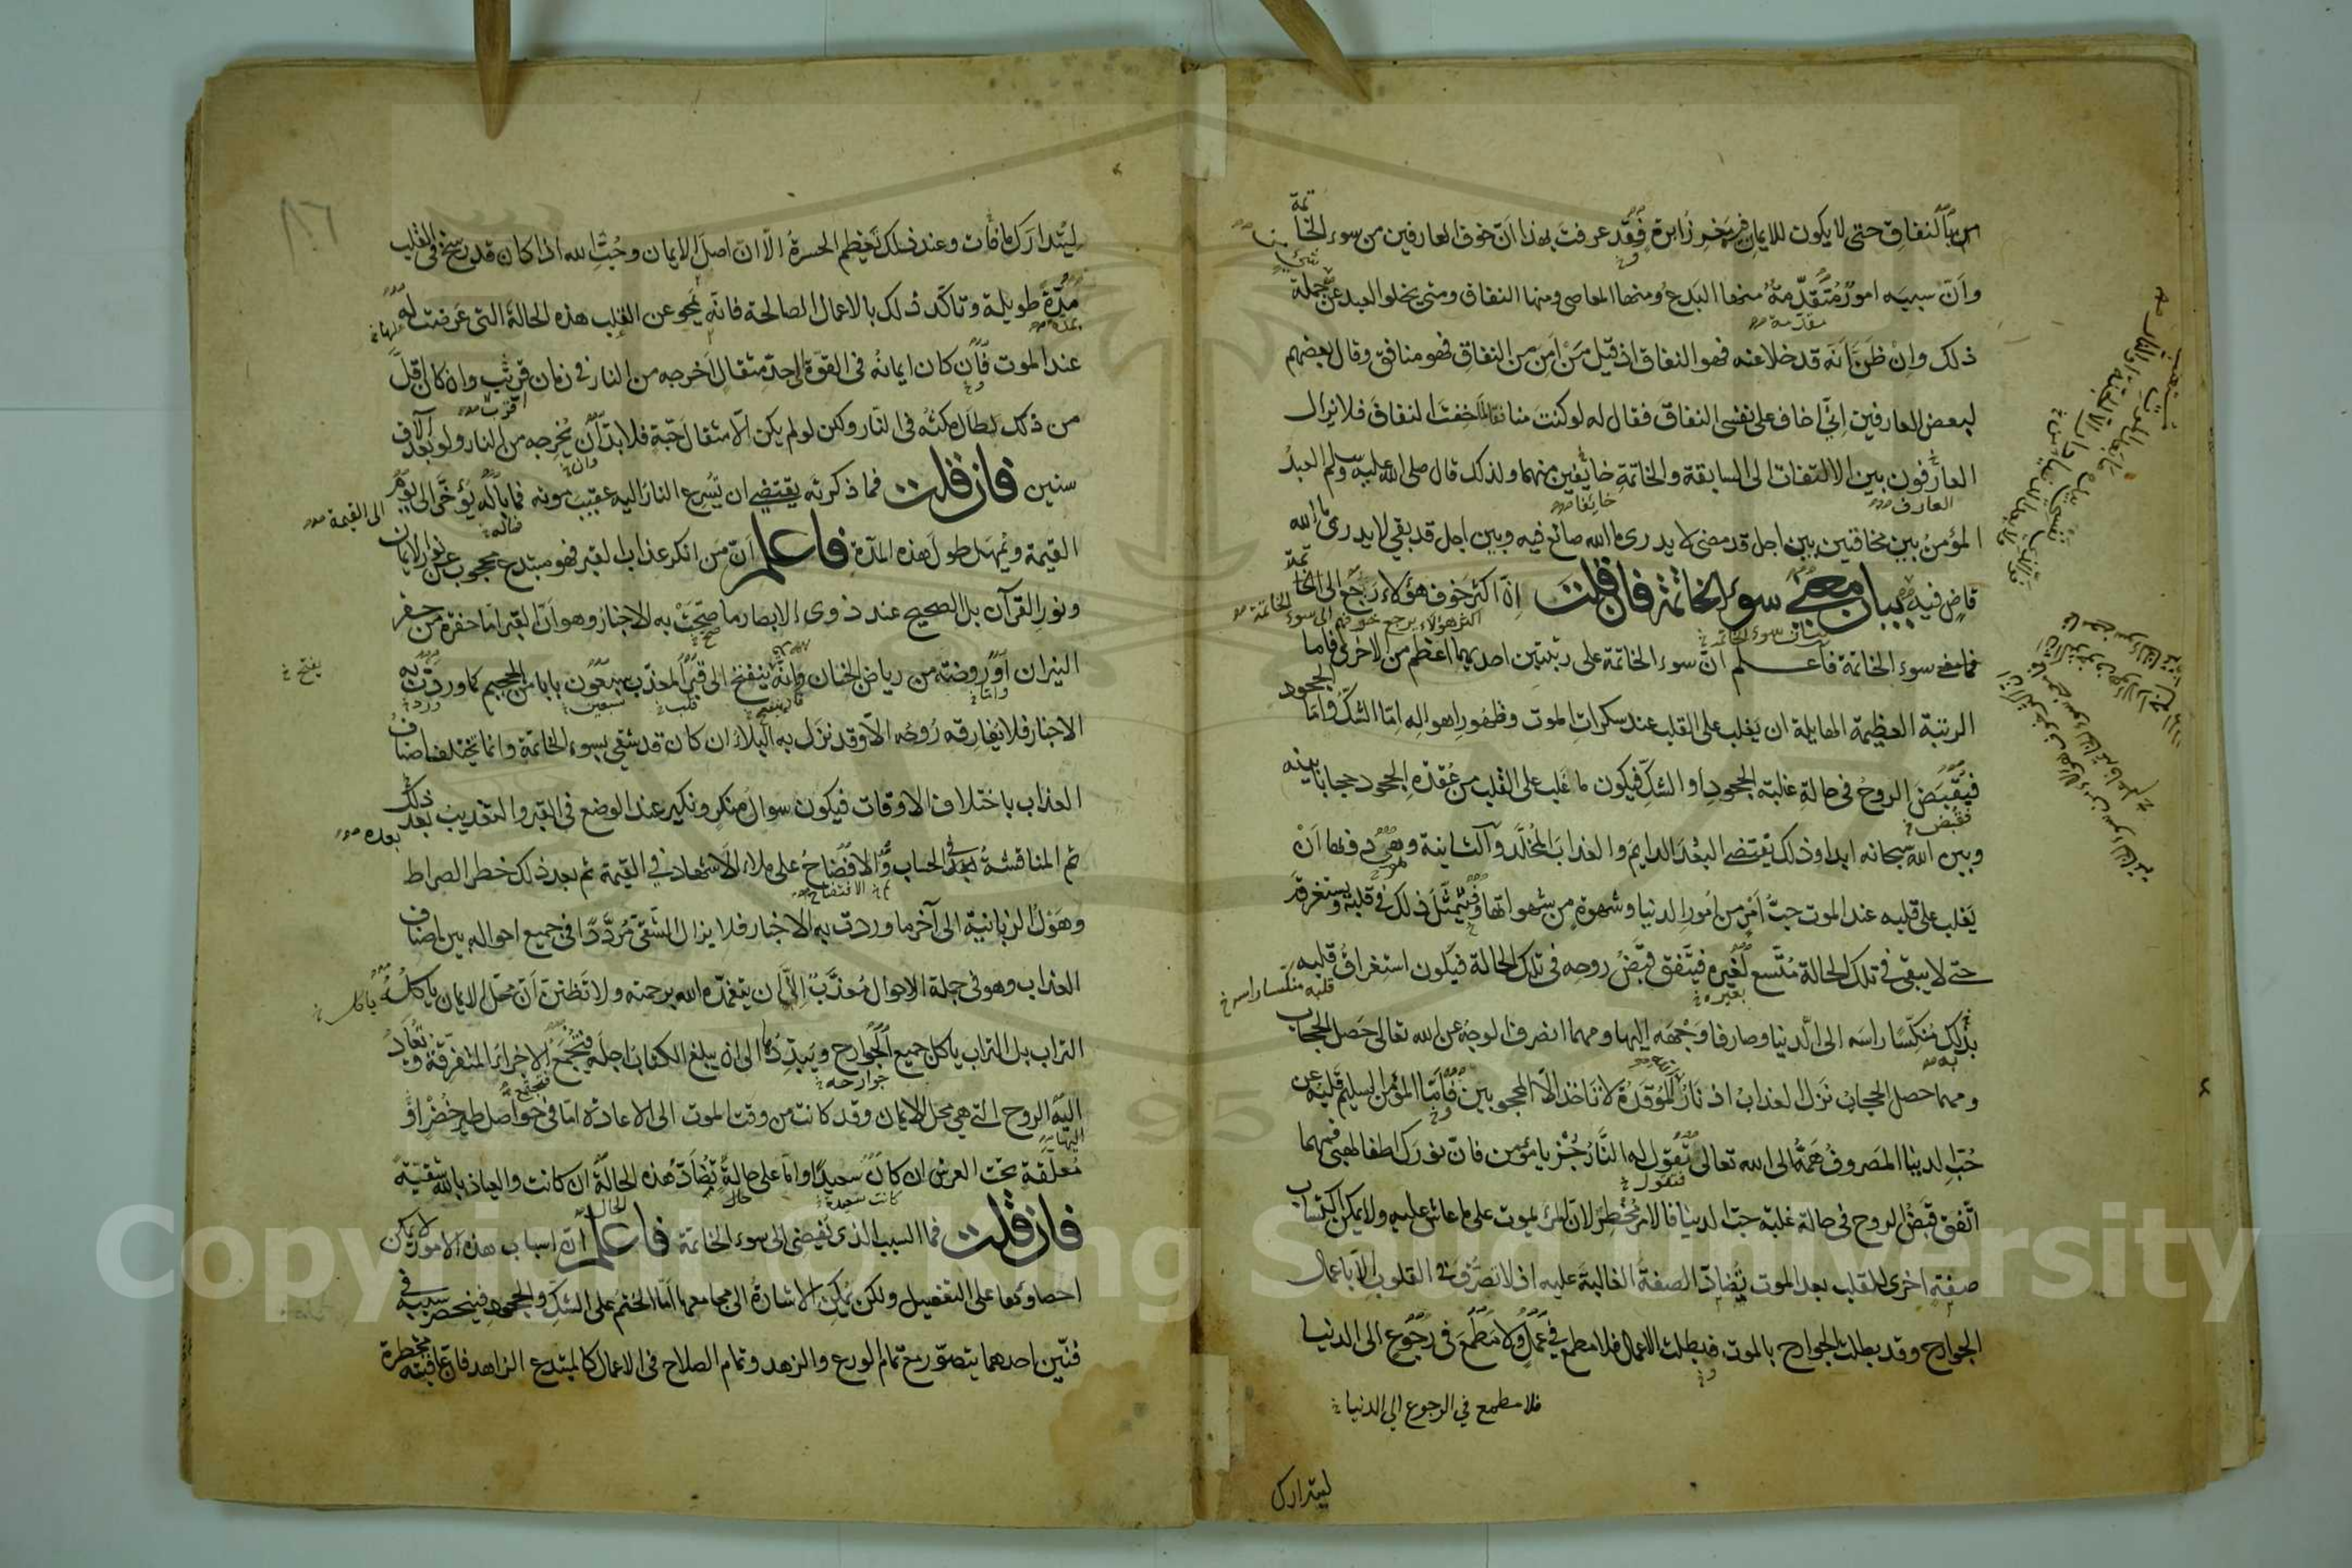 من سبب النفاق حتى لا يكون للايمان فيه فقد عرفت بهذا انّ خوف العارفين من سوء الخاتمة
وانّ سببه امور متقدّمة منها البدع ومنها المعاصى ومنها النفاق ومتى يخلوا العبد عن جملة
ذلك وان ظن أنه قد خلا عنه فهو النفاق اذ قيل من امن من النفاق فهو منافق وقال بعضهم
لبعض العارفين انّى اخاف على نفسى النفاق فقال له لو كنت منافقا لما خفت النفاق فلا يزال
العارفون بين الالتفات الى السابقة والخاتمة خائفين منهما ولذلك قال صلى الله عليه وسلم العبد
المؤمن بين مخافتين بين اجل قد مضى لا يدرى ما الله صانع فيه وبين اجل قد بقى لا يدرى ما الله
قاض فيه بيان معنى سوء الخاتمة فان قلت انّ اكثر خوف هؤلاء رجع الى الخاتمة
فما معنى سوء الخاتمة فاعلم انّ سوء الخاتمة على رتبتين احديهما اعظم من الاخرى فاما
الرتبة العظيمة الهايلة ان يغلب على القلب عند سكرات الموت وظهور اهواله امّا الشك وامّا الجحود
فيقبض الروح فى حالة غلبة الجحود أو الشك فيكون ما غلب على القلب من عقدة الجحود حجابا بينه
وبين الله سبحانه ابدا وذلك يقتضى البعد الدايم والعذاب المخلّد والثانية وهى دونها أن
يغلب على قلبه عند الموت حبّ امر من امور الدنيا وشهوة من شهواتها فيتمثّل ذلك فى قلبه ويستغرقه
حتى لا يبقى فى تلك الحالة متّسع لغيره فيتفق قبض روحه فى تلك الحالة فيكون استغراق قلبه
بذلك منكّسا راسه الى الدنيا وصارفا وجهه اليها ومهما انصرف الوجه عن الله تعالى حصل الحجاب
ومهما حصل الحجاب نزل العذاب اذ نار الله الموقدة لا تاخذ الّا المحجوبين فأمّا المؤمن السليم قلبه عن
حبّ الدنيا المصروف همّه الى الله تعالى تقول له النّار جُز يا مؤمن فانّ نورك اطفا لهبى فمهما
اتّفق قبض الروح فى حالة غلبة حبّ الدنيا فالامر مخطر لانّ المرء يموت على ما عاش عليه ولا يمكن اكتساب
صفة اخرى للقلب بعد الموت تضادّ الصفة الغالبة عليه اذ لا تصرّف فى القلوب الّا باعمال
الجوارح وقد بطلت الجوارح بالموت فبطلت الاعمال فلا مطمع فى عمل ولا مطمع فى رجوع الى الدنيا
فلا مطمع في الرجوع الى الدنيا
ليتدارك
ليتدارك ما فات وعند ذلك تعظم الحسرة الّا انّ اصل الايمان وحبّ الله اذا كان قد رسخ فى القلب
مدّة طويلة وتاكّد ذلك بالاعمال الصالحة فانّه يمحو عن القلب هذه الحالة التى عرضت له
عند الموت فان كان ايمانه فى القوّة الى حدّ مثقال أخرجه من النار فى زمان قريب وان كان اقلّ
من ذلك لطال مكثه فى النّار ولكن لو لم يكن الّا مثقال حبّة فلا بدّ أن يخرجه من النار ولو بعد آلاف
سنين فان قلت فما ذكرته يقتضى ان تسرع النار اليه عقيب موته فما باله يؤخّر الى يوم
القيمة ويمهل طول هذه المدّة فاعلم انّ من انكر عذاب القبر فهو مبتدع محجوب عن نور الايمان
ونور القرآن بل الصحيح عند ذوى الابصار ما صحّت به الاخبار وهو انّ القبر امّا حفرة من حفر
النيران او روضة من رياض الجنان وانّه ينفتح الى قبر المعذّب سبعون بابا من الجحيم كما وردت به
الاخبار فلا يفارقه روحه الّا وقد نزل به البلاء ان كان قد شقى بسوء الخاتمة وانما تختلف اصناف
العذاب باختلاف الاوقات فيكون سوال منكر ونكير عند الوضع فى القبر والتعذيب بعد ذلك
ثم المناقشة فى الحساب والافتضاح على ملاء الاشهاد فى القيمة ثم بعد ذلك خطر الصراط
وهول الزبانية الى آخر ما وردت به الاخبار فلا يزال الشقى مردّدا فى جميع احواله بين اصناف
العذاب وهو فى جملة الاحوال معذّب الّا أن يتغمّده الله برحمته ولا تظنّن انّ محلّ الايمان ياكله
التراب بل التراب ياكل جميع الجوارح ويبدّدها الى ان يبلغ الكتاب اجله فتجمع الاجزاء المتفرّقة وتعاد
اليه الروح التى هى محل الايمان وقد كانت من وقت الموت الى الاعادة امّا فى حواصل طير خضر او
معلّقة تحت العرش ان كان سعيدا وامّا على حالة تضادّ هذه الحالة ان كانت والعياذ بالله شقيّة
فان قلت فما السبب الذى يفضى الى سوء الخاتمة فاعلم أنّ اسباب هذه الامور لا يمكن
احصاؤها على التفصيل ولكن يمكن الاشارة الى مجامعها امّا الختم على الشك والجحود فينحصر سببه فى
فنّين احدهما يتصوّر مع تمام الورع والزهد وتمام الصلاح فى الاعمال كالمبتدع الزاهد فان عاقبته مخطرة
Copyright © King Saud University